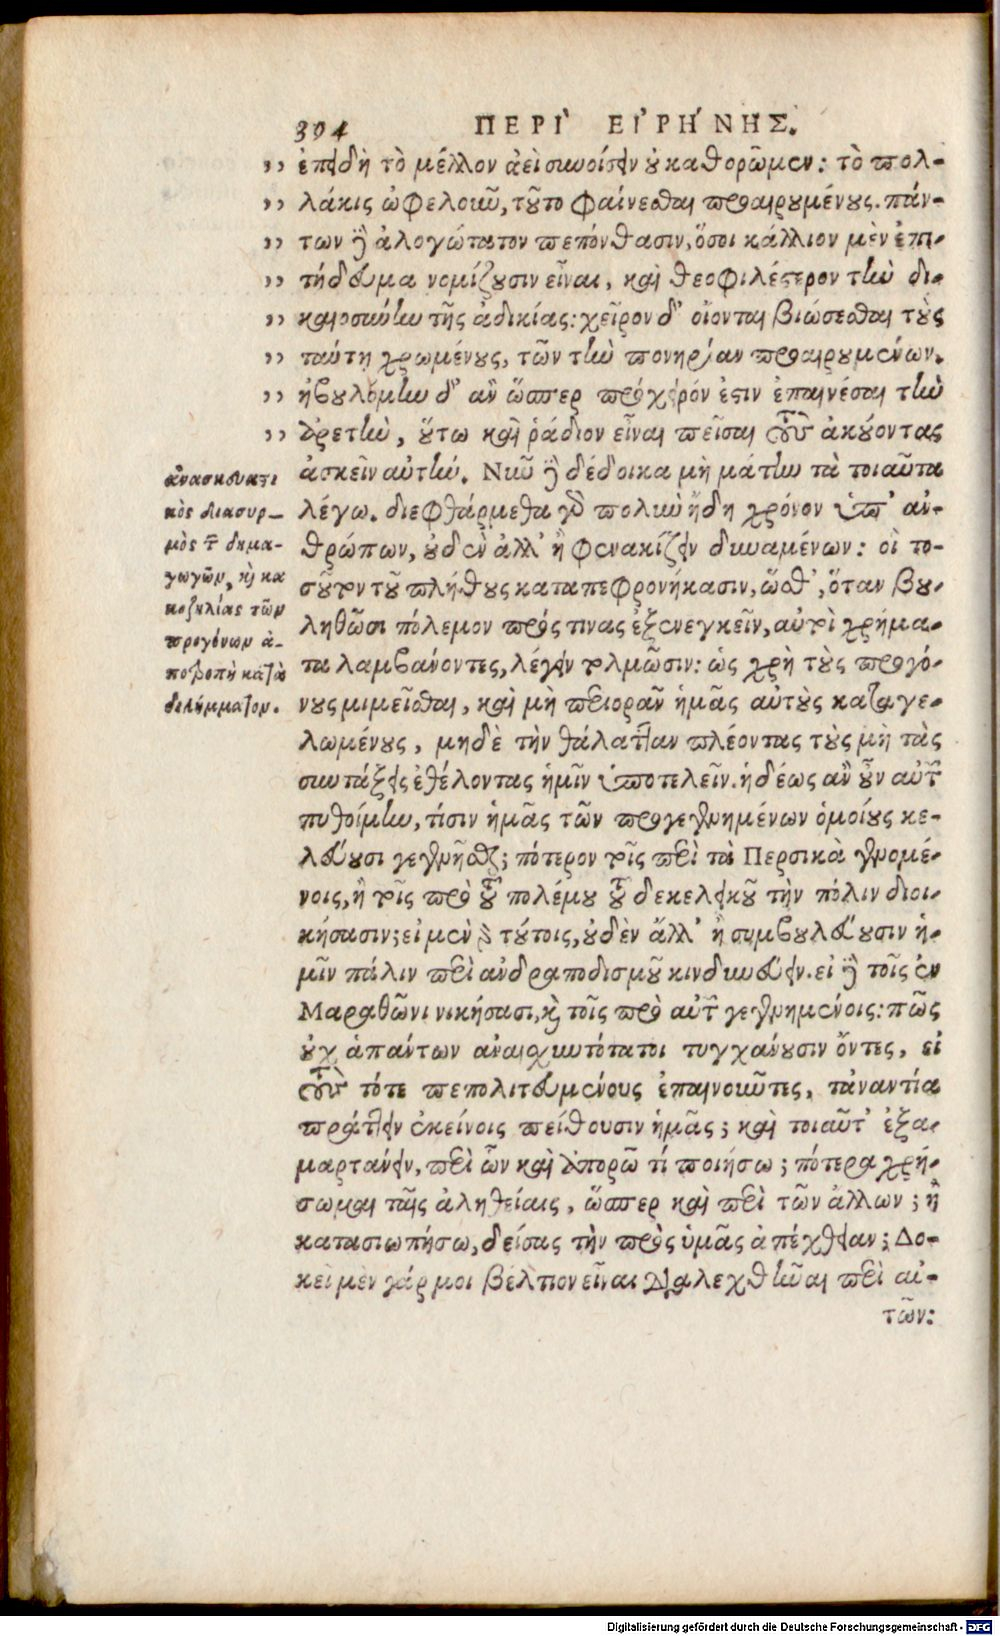 394 ΠΕΡΙ` ΕΙ᾿ΡΗ΄ΝΗΣ.
,, ἐπειδὴ τὸ μέλλον ἀεὶ συνοίσειν οὐ καθορῶμεν: τὸ πολ-
,, λάκις ὠφελοῦν, τοῦτο φαίνεσθαι προαιρουμένους. πάν-
,, των δὲ ἀλογώτατον πεπόνθασιν, ὅσοι κάλλιον μὲν ἐπι-
,, τήδευμα νομίζουσιν εἶναι, καὶ θεοφιλέστερον τὴν δι-
,, καιοσύνην τῆς ἀδικίας: χεῖρον δ' οἴονται βιώσεσθαι τοὺς
,, ταύτῃ χρωμένους, τῶν τὴν πονηρίαν προαιρουμένων.
,, ἠβουλόμην δ' ἂν ὥσπερ πρόχειρόν ἐστιν ἐπαινέσαι τὴν
,, ἀρετὴν, οὕτω καὶ ῥάδιον εἶναι πεῖσαι τοὺς ἀκούοντας
ἀσκεῖν αὐτήν. Νῦν δὲ δέδοικα μὴ μάτην τὰ τοιαῦτα
λέγω. διεφθάρμεθα γὰρ πολὺν ἤδη χρόνον ὑπ' ἀν-
θρώπων, οὐδὲν ἀλλ' ἢ φενακίζειν δυναμένων: οἳ το-
σοῦτον τοῦ πλήθους καταπεφρονήκασιν, ὥσθ', ὅταν βου-
ληθῶσι πόλεμον πρός τινας ἐξενεγκεῖν, αὐτοὶ χρήμα-
τα λαμβάνοντες, λέγειν τολμῶσιν: ὡς χρὴ τοὺς προγό-
νους μιμεῖσθαι, καὶ μὴ περιορᾶν ἡμᾶς αὐτοὺς καταγε-
λωμένους, μηδὲ τὴν θάλατταν πλέοντας τοὺς μὴ τὰς
συντάξεις ἐθέλοντας ἡμῖν ὑποτελεῖν. ἡδέως ἂν οὖν αὐτῶν
πυθοίμην, τίσιν ἡμᾶς τῶν προγεγενημένων ὁμοίους κε-
λεύουσι γενέσθαι; πότερον τοῖς περὶ τὰ Περσικὰ γενομέ-
νοις, ἢ τοῖς πρὸ τοῦ πολέμου τοῦ δεκελεικοῦ τὴν πόλιν διοι-
κήσασιν; εἰ μὲν γὰρ τούτοις, οὐδὲν ἄλλ' ἢ συμβουλεύουσιν ἡ-
μῖν πάλιν περὶ ἀνδραποδισμοῦ κινδυνεύειν. εἰ δὲ τοῖς ἐν
Μαραθῶνι νικήσασι, καὶ τοῖς πρὸ αὐτῶν γεγενημένοις: πῶς
οὐχ ἁπάντων ἀναισχυντότατοι τυγχάνουσιν ὄντες, εἰ
τοὺς τότε πεπολιτευμένους ἐπαινοῦντες, τἀναντία
πράττειν ἐκείνοις πείθουσιν ἡμᾶς; καὶ τοιαῦτ' ἐξα-
μαρτάνειν, περὶ ὧν καὶ ἀπορῶ τί ποιήσω; πότερα χρή-
σωμαι ταῖς ἀληθείαις, ὥσπερ καὶ περὶ τῶν ἄλλων; ἢ
κατασιωπήσω, δείσας τὴν πρὸς ὑμᾶς ἀπέχθειαν; Δο-
κεῖ μὲν γάρ μοι βέλτιον εἶναι διαλεχθῆναι περὶ αὐ-
τῶν:
ἀνασκευαστι
κὸς διασυρ-
μὸς τῶν δημα-
γωγῶν, καὶ κα
κοζηλίας τῶν
προγόνων ἀ-
ποτροπὴ κατὰ
διλήμματον.
Digitalisierung gefördert durch die Deutsche Forschungsgemeinschaft - DFG